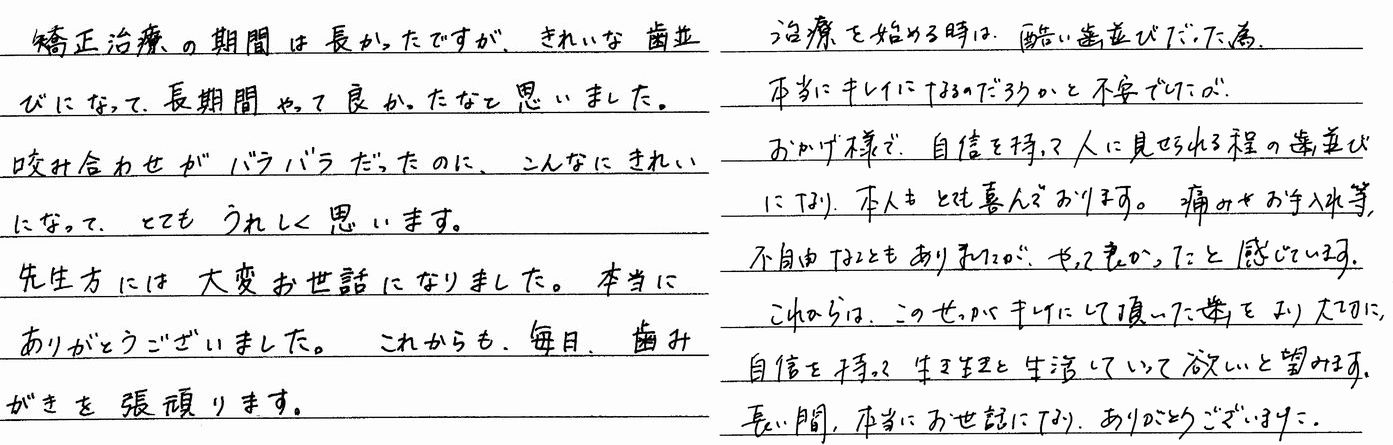 矯正治療の期間は長かったですが、きれいな歯並
びになって、長期間やって良かったなと思いました。
咬み合わせがバラバラだったのに、こんなにきれい
になって、とてもうれしく思います。
先生方には大変お世話になりました。本当に
ありがとうございました。これからも、毎日、歯み
がきを張頑ります。
治療を始める時は、酷い歯並びだった為、
本当にキレイになるのだろうかと不安でしたが、
おかげ様で、自信を持って人に見せられる程の歯並び
になり、本人もとても喜んでおります。痛みやお手入れ等、
不自由なこともありましたが、やって良かったと感じています。
これからは、このせっかくキレイにして頂いた歯をより大切に、
自信を持って生き生きと生活していって欲しいと望みます。
長い間、本当にお世話になり、ありがとうございました。